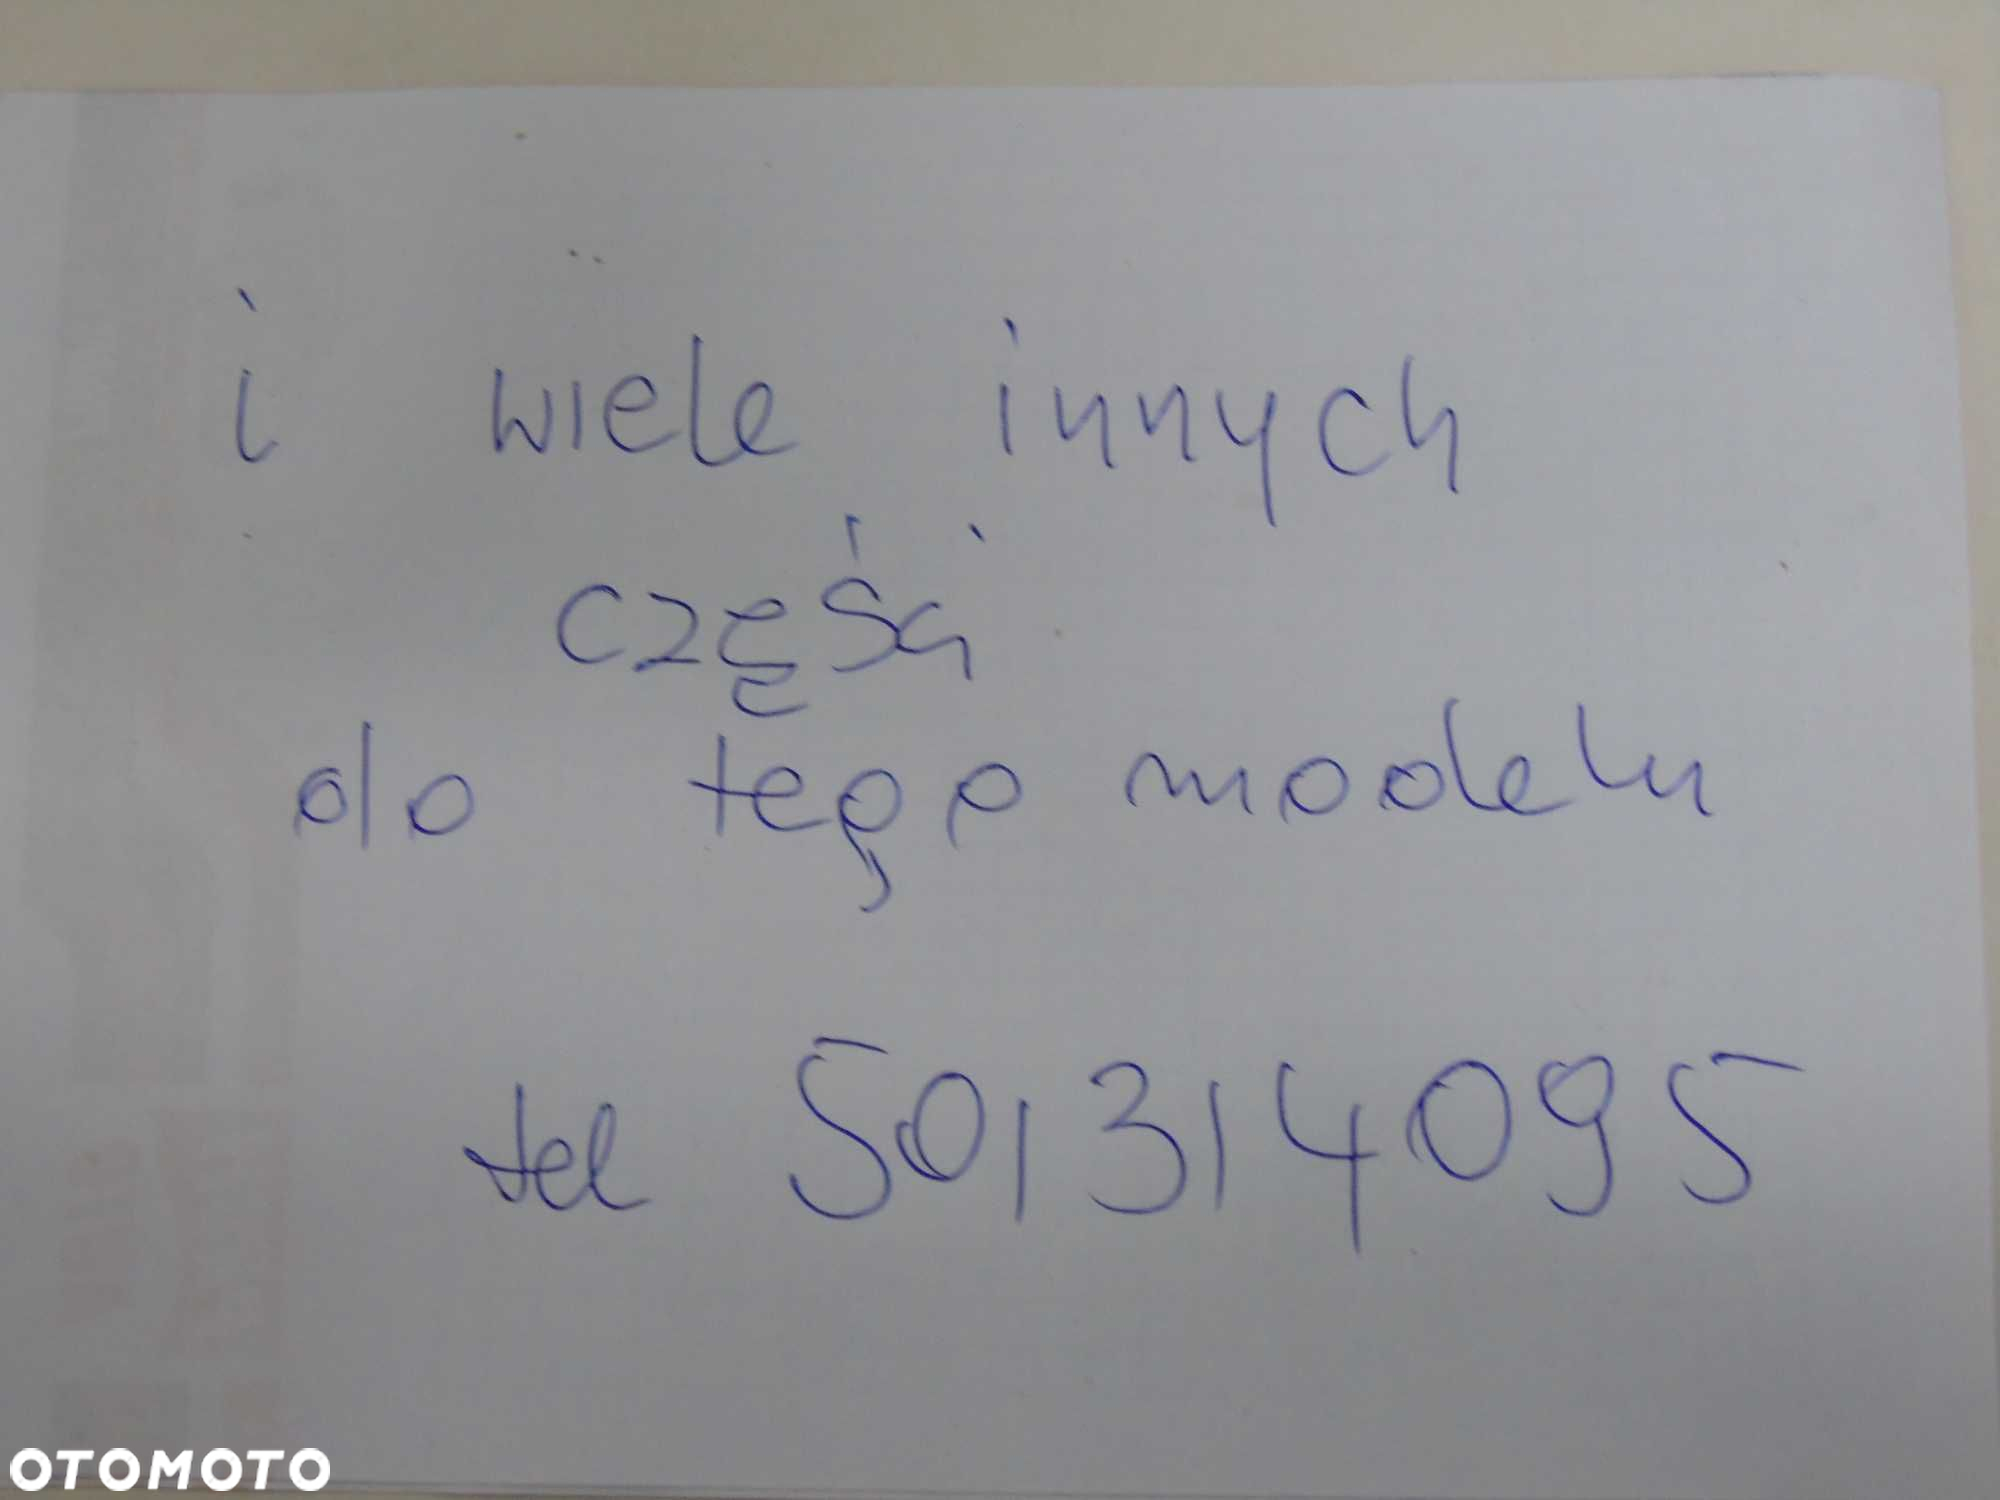 i wiele innych
części
do tego modelu
tel 501314095
OTOMOTO